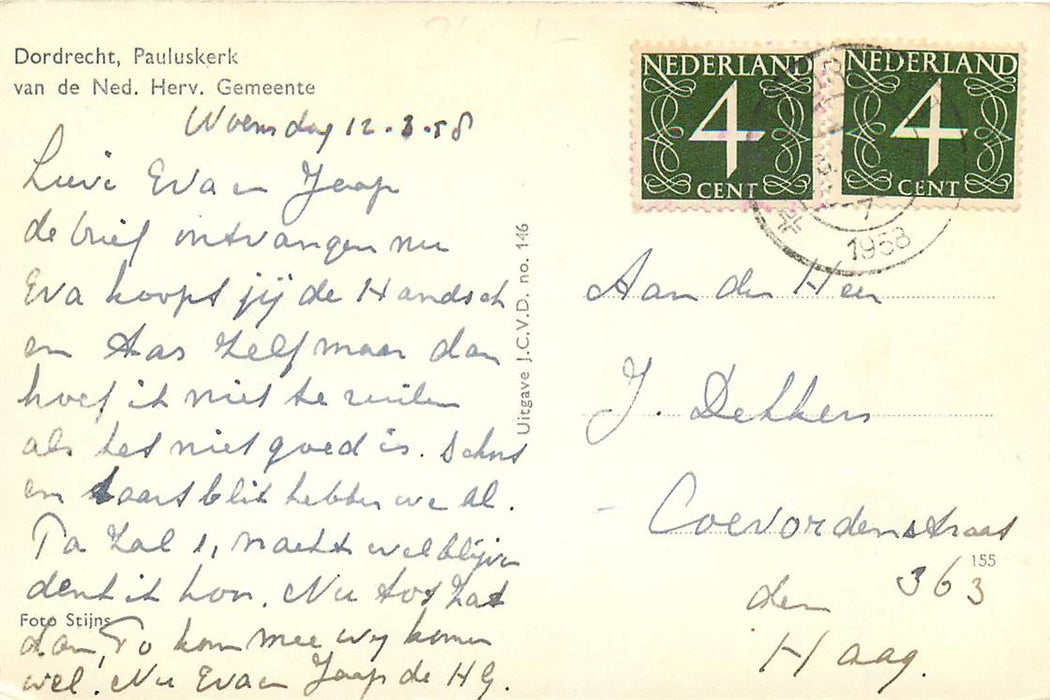 Dordrecht, Pauluskerk
van de Ned. Herv. Gemeente
Woensdag 12.3.58
Lieve Eva en Jaap
de brief ontvangen nu
Eva koopt jij de Handsch
en das zelf maar dan
hoef ik niet te ruilen
als het niet goed is.
en taartblik hebben we al.
Ta zal 1 nacht wel blijven
denk ik hoor. Nu tot Zat
Foto Stijns
dan, To kom mee wij komen
wel. Nu Eva en Jaap de HG.
Uitgave J.C.V.D. no. 146
NEDERLAND
4
CENT
NEDERLAND
4
CENT
1958
Aan den Heer
J. Dekkers
Coevordenstraat
155
363
den
Haag.